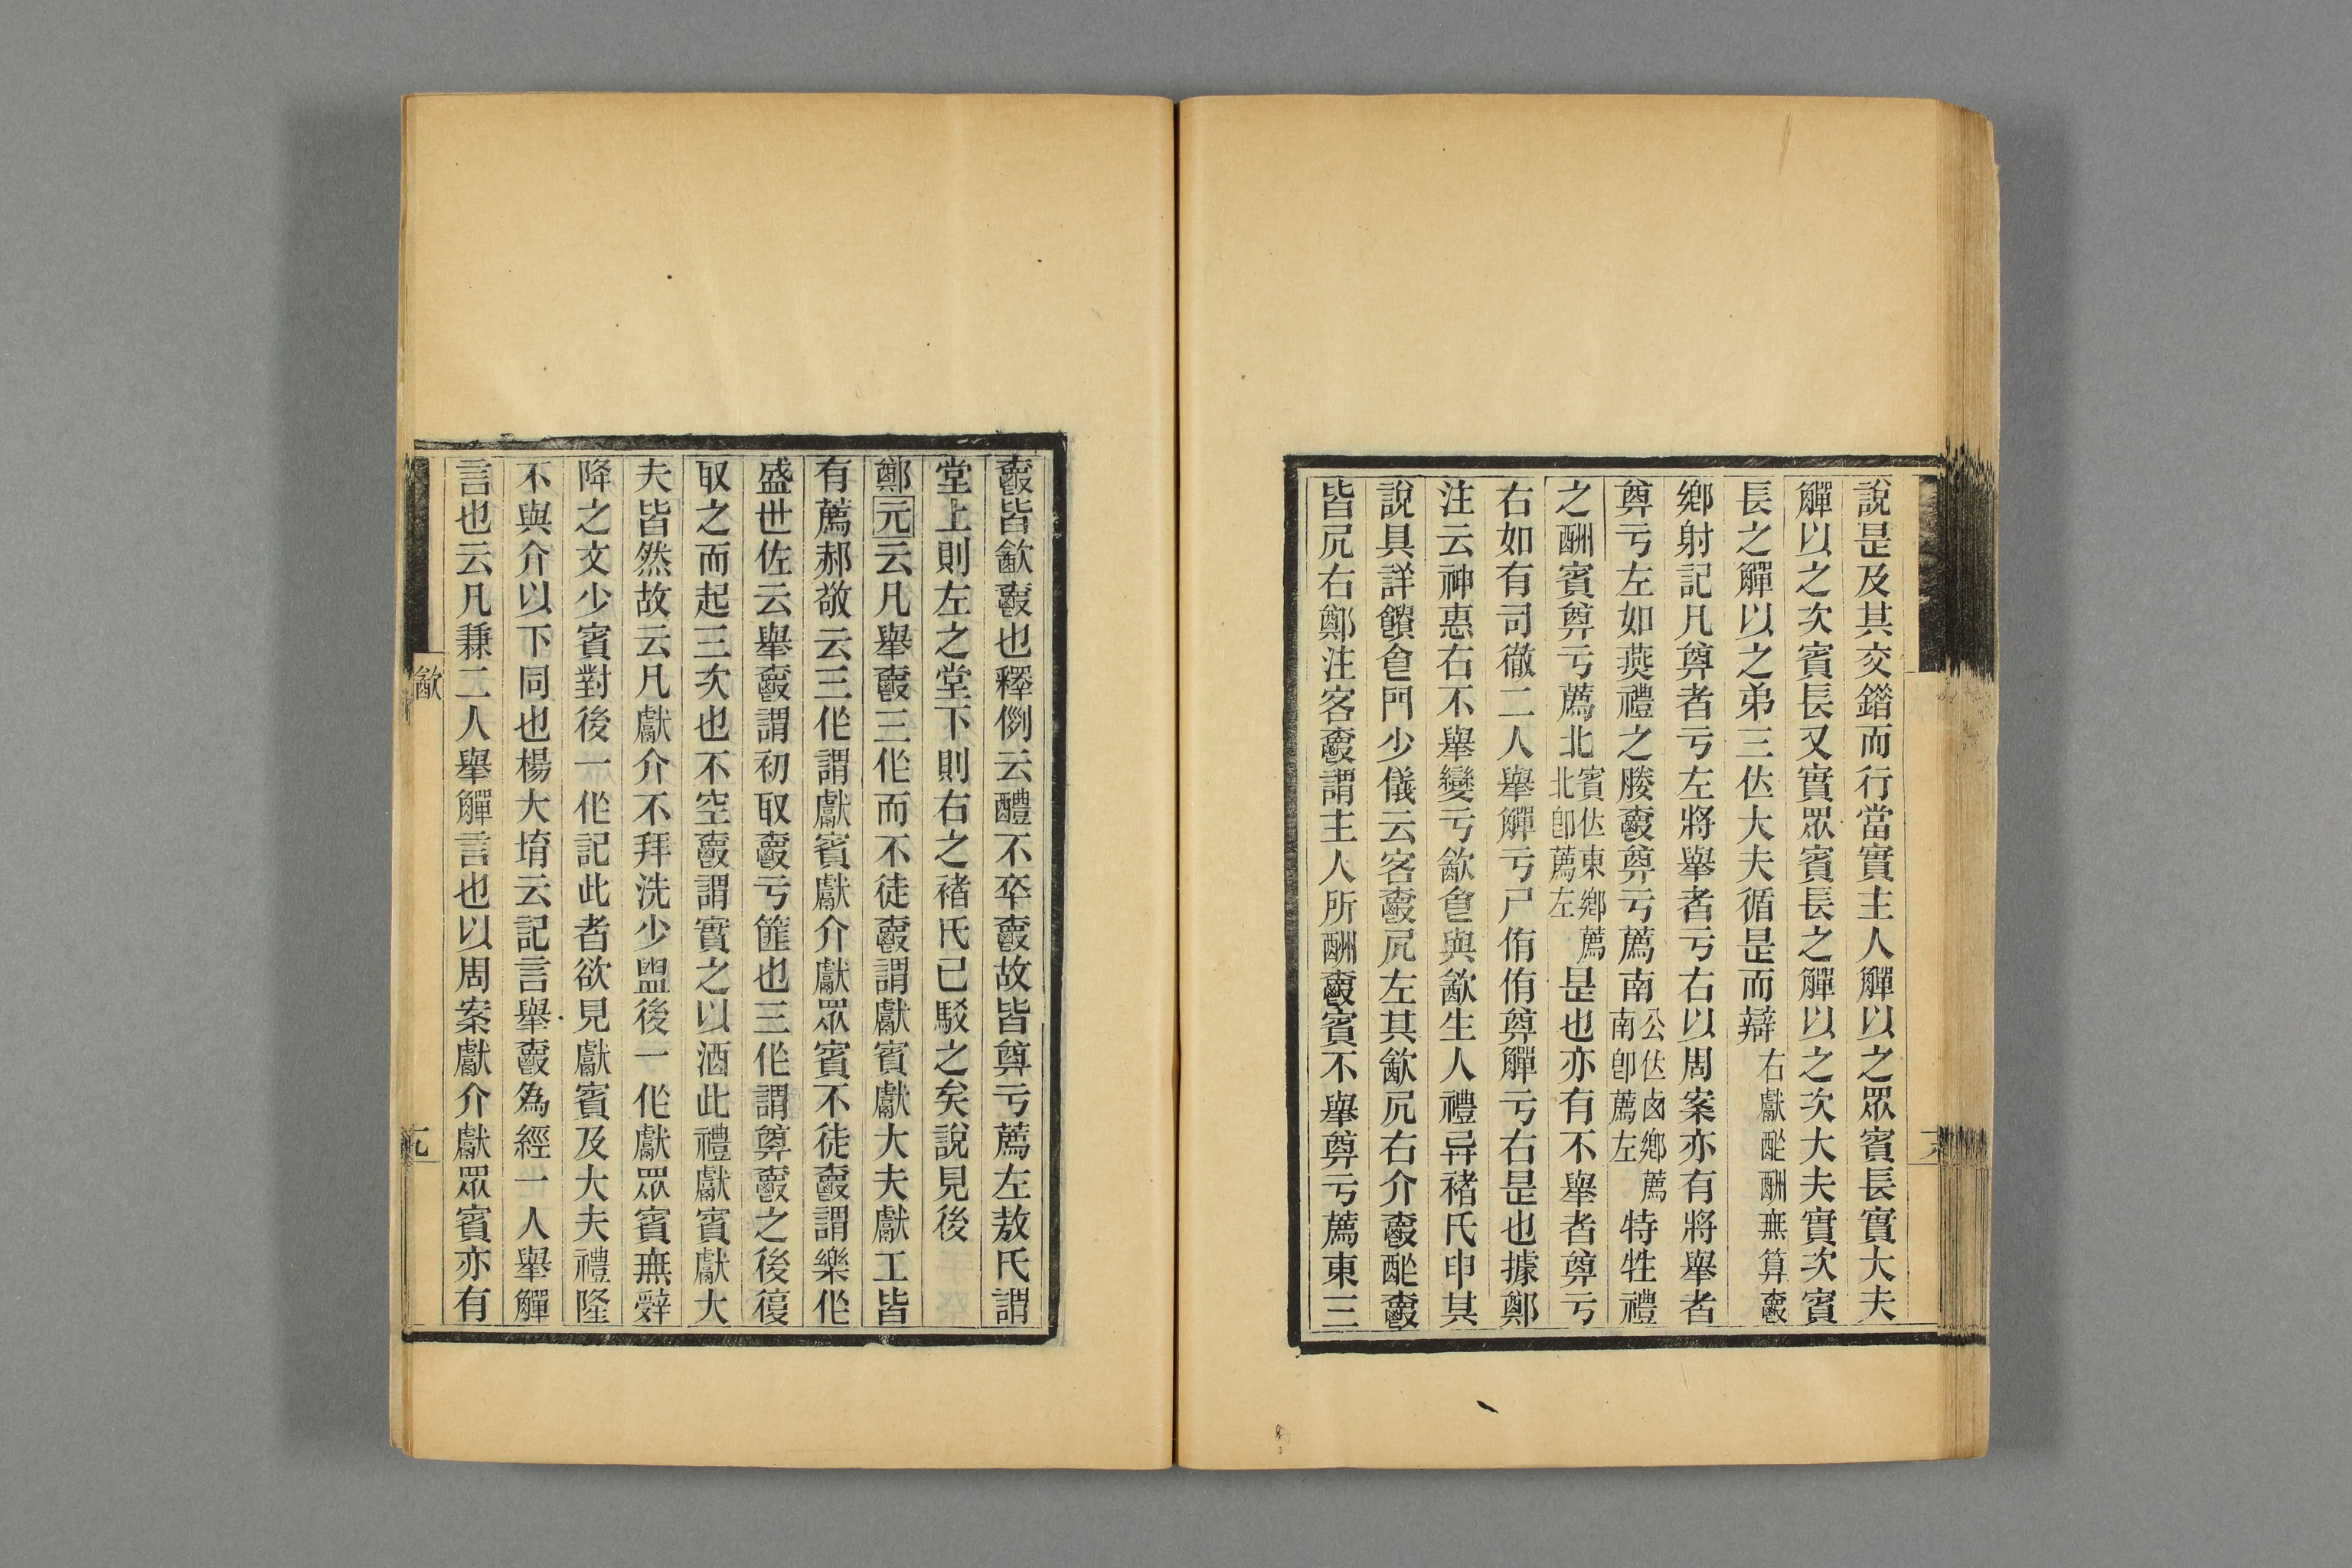 說是及其交錯而行當實主人觶以之眾賓長實大夫
觶以之次賓長又實眾賓長之觶以之次大夫實次賓
長之觶以之弟三位大夫循是而辯右獻酢酬無算爵
鄉射記凡奠者亏左將舉者亏右以周案亦有將舉者
奠亏左如燕禮之媵爵奠亏薦南公位卤鄉薦南卽薦左特牲禮
之酬賓奠亏薦北賓位東鄉薦北卽薦左是也亦有不舉者奠亏
右如有司徹二人舉觶亏尸侑侑奠觶亏右是也據鄭
注云神惠右不舉變亏歓食與歓生人禮异褚氏申其
說具詳饋食門少儀云客爵凥左其歓凥右介爵酢爵
皆凥右鄭注客爵謂主人所酬爵賓不舉奠亏薦東三
爵皆歓爵也釋例云醴不卒爵故皆奠亏薦左敖氏謂
堂上則左之堂下則右之褚氏已駁之矣說見後
鄭元云凡舉爵三作而不徒爵謂獻賓獻大夫獻工皆
有薦郝敬云三作謂獻賓獻介獻眾賓不徒爵謂樂作
盛世佐云舉爵謂初取爵亏篚也三作謂奠爵之後復
取之而起三次也不空爵謂實之以酒此禮獻賓獻大
夫皆然故云凡獻介不拜洗少盥後一作獻眾賓無辭
降之文少賓對後一作記此者欲見獻賓及大夫禮隆
不與介以下同也楊大堉云記言舉爵為經一人舉觶
言也云凡兼二人舉觶言也以周案獻介獻眾賓亦有
歓
九